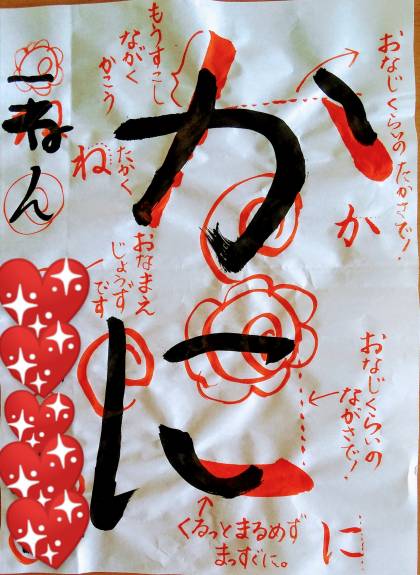 おなじくらいの たかさで!
か
か
もうすこし
ながく
かこう
おなじくらいの
ながさで!
に
に
くるっとまるめず
まっすぐに。
おなまえ
じょうず
です
たかく
ね
一ねん